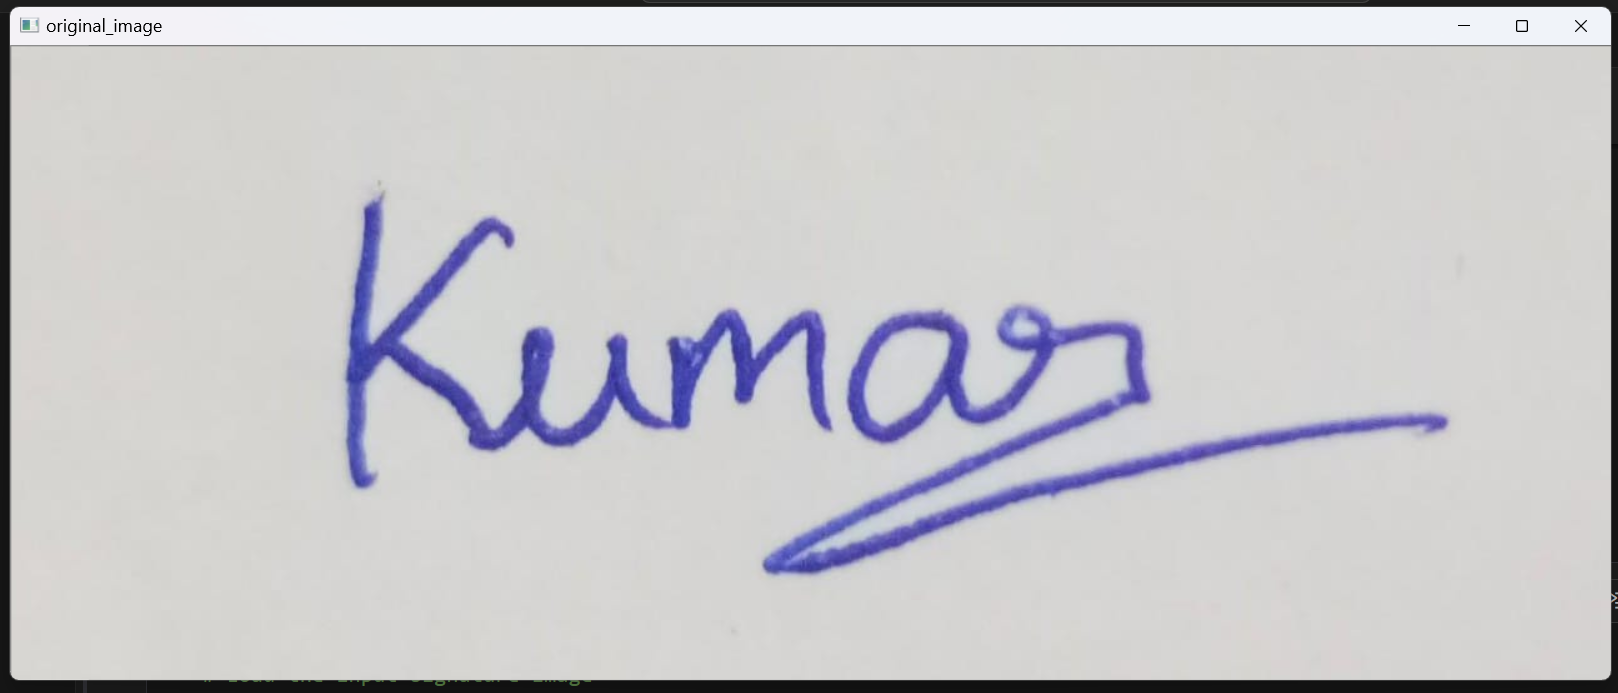 original_image
Kumar
# Load the input signature image